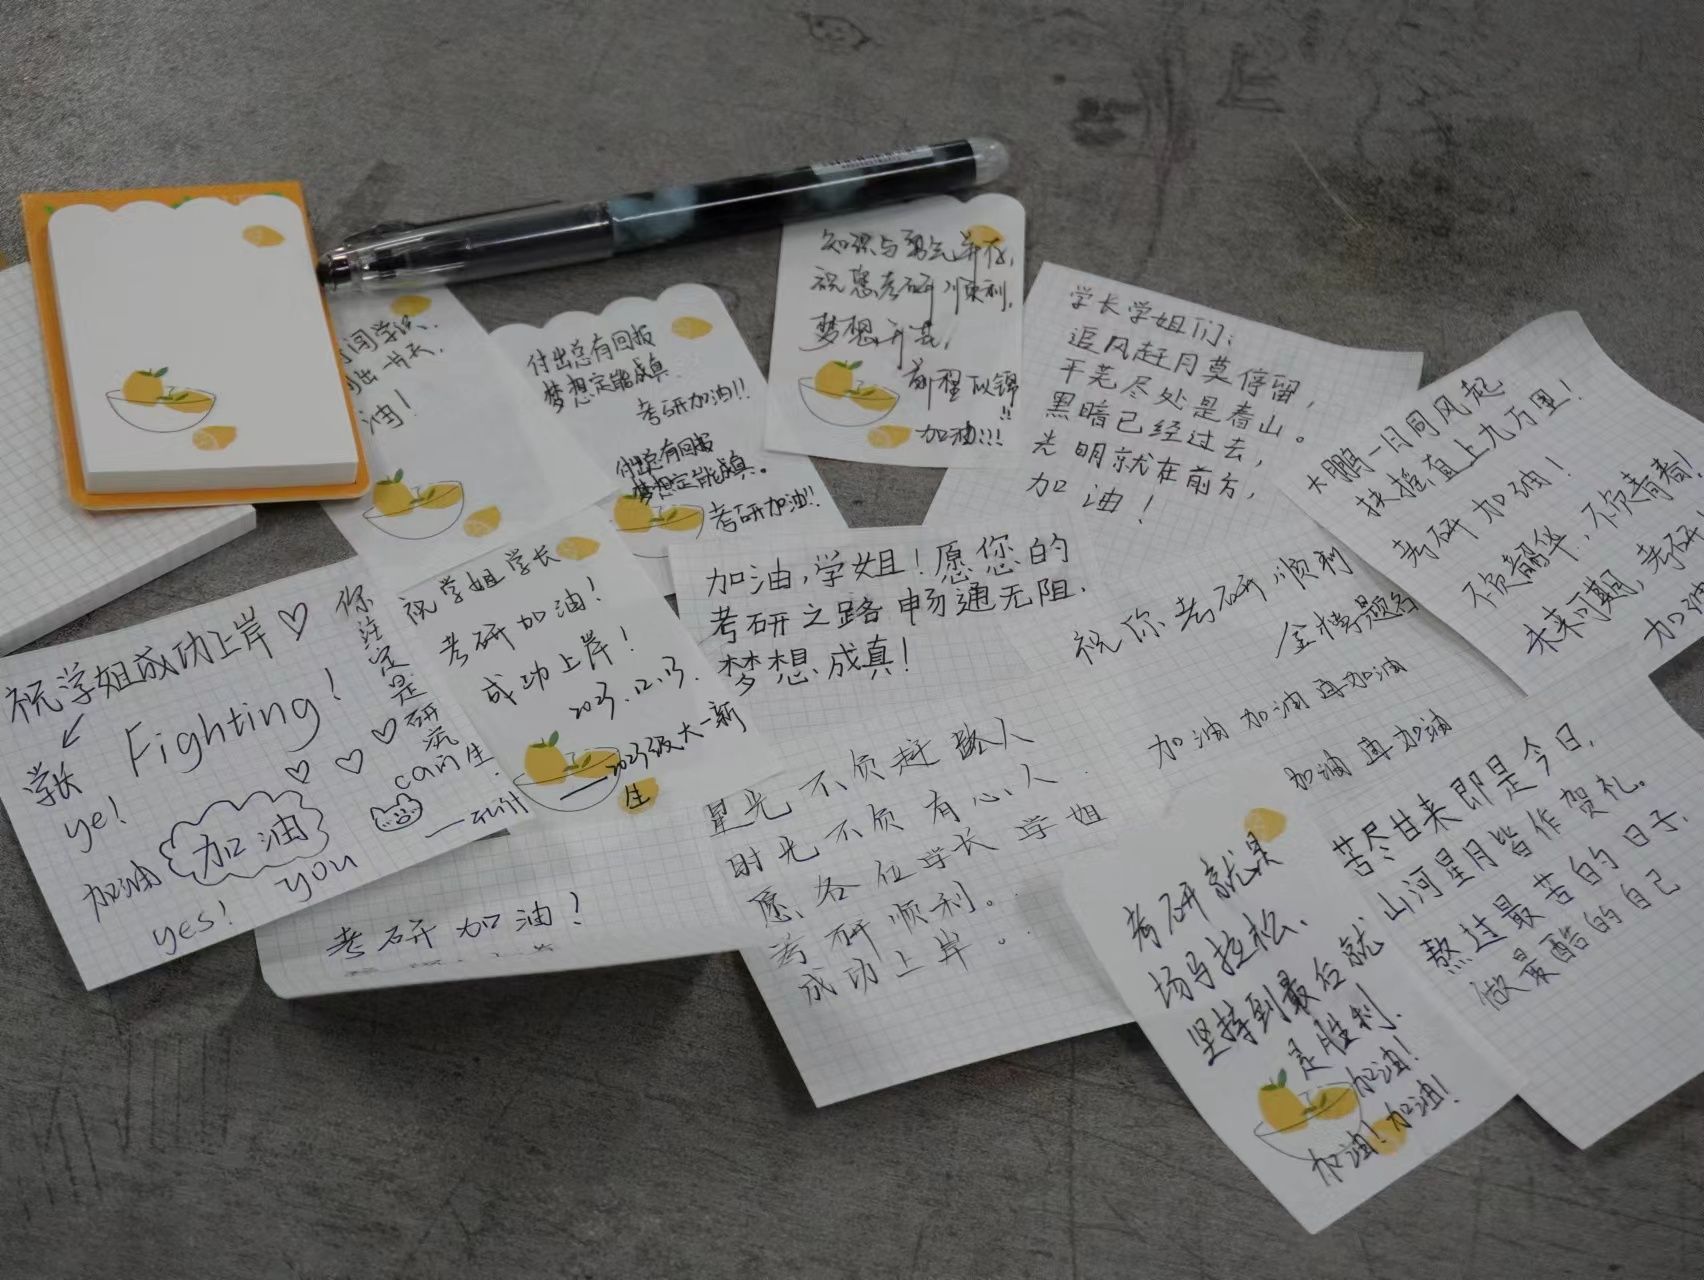 知识与勇气并存,
祝您考研顺利,
梦想开花,
前程似锦
!!
加油!!!
闯学识,
出一片天,
油!
付出总有回报
梦想定能成真
考研加油!!
付出总有回报
梦想定能成真。
考研加油!!
学长学姐们:
追风赶月莫停留,
平芜尽处是春山。
黑暗已经过去,
光明就在前方,
加油!
大鹏一日同风起
扶摇直上九万里!
考研加油!
不负韶华,不负青春!
未来可期,考研
加油
祝学姐成功上岸♡
学长
Fighting!
ye!
加油
加油
yes!
you
你注定是研究
生
祝学姐学长
考研加油!
成功上岸!
2023.12.13.
2023级大一新
生
加油,学姐!愿您的
考研之路畅通无阻.
梦想成真!
祝你考研顺利
金榜题名
加油加油再加油
加油再加油
考研加油!
星光不负赶路人
时光不负有心人.
愿各位学长学姐
考研顺利。
成功上岸。
考研就是
场马拉松、
坚持到最后就
是胜利.
加油!
加油!加油!
苦尽甘来即是今日,
山河星月皆作贺礼。
熬过最苦的日子,
做最酷的自己